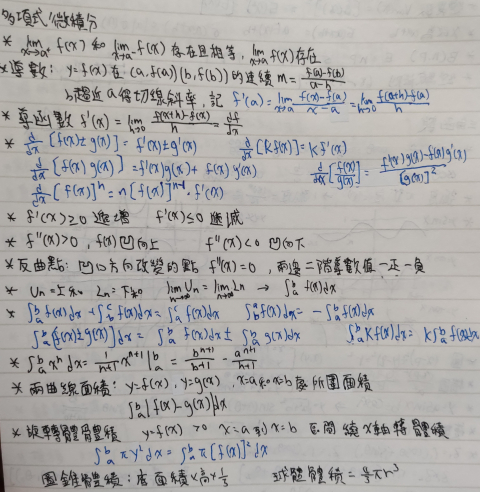 多項式微積分
* lim x→a⁺ f(x) 和 lim x→a⁻ f(x) 存在且相等, lim x→a f(x) 存在
* 導數: y=f(x) 在 (a, f(a)) (b, f(b)) 的連續 m = (f(a)-f(b))/(a-b)
b趨近a得切線斜率, 記 f'(a) = lim x→a (f(x)-f(a))/(x-a) = lim h→0 (f(a+h)-f(a))/h
* 導函數 f'(x) = lim h→0 (f(x+h)-f(x))/h = df/dx
* d/dx [f(x) ± g(x)] = f'(x) ± g'(x) d/dx [kf(x)] = kf'(x)
d/dx [f(x) g(x)] = f'(x)g(x) + f(x) g'(x) d/dx [f(x)/g(x)] = (f'(x)g(x) - f(x)g'(x))/[g(x)]²
d/dx [f(x)]ⁿ = n[f(x)]ⁿ⁻¹ · f'(x)
* f'(x) ≥ 0 遞增 f'(x) ≤ 0 遞減
* f''(x) > 0, f(x) 凹向上 f''(x) < 0 凹向下
* 反曲點: 凹口方向改變的點 f''(x) = 0, 兩邊二階導數值一正一負
* Un = 上和 Ln = 下和 lim n→∞ Un = lim n→∞ Ln → ∫ₐᵇ f(x)dx
* ∫ₐᵇ f(x)dx + ∫ᵇᶜ f(x)dx = ∫ₐᶜ f(x)dx ∫ᵇₐ f(x)dx = -∫ₐᵇ f(x)dx
∫ₐᵇ [f(x) ± g(x)]dx = ∫ₐᵇ f(x)dx ± ∫ₐᵇ g(x)dx ∫ₐᵇ Kf(x)dx = K∫ₐᵇ f(x)dx
* ∫ₐᵇ xⁿ dx = 1/(n+1) xⁿ⁺¹ |ₐᵇ = bⁿ⁺¹/(n+1) - aⁿ⁺¹/(n+1)
* 兩曲線面積: y=f(x), y=g(x), x=a和x=b 所圍面積
∫ₐᵇ |f(x) - g(x)|dx
* 旋轉體體積 y=f(x) > 0 x=a到x=b 區間繞x軸轉體積
∫ₐᵇ πy² dx = ∫ₐᵇ π[f(x)]² dx
圓錐體體積: 底面積×高×1/3 球體體積 = 4/3 πr³